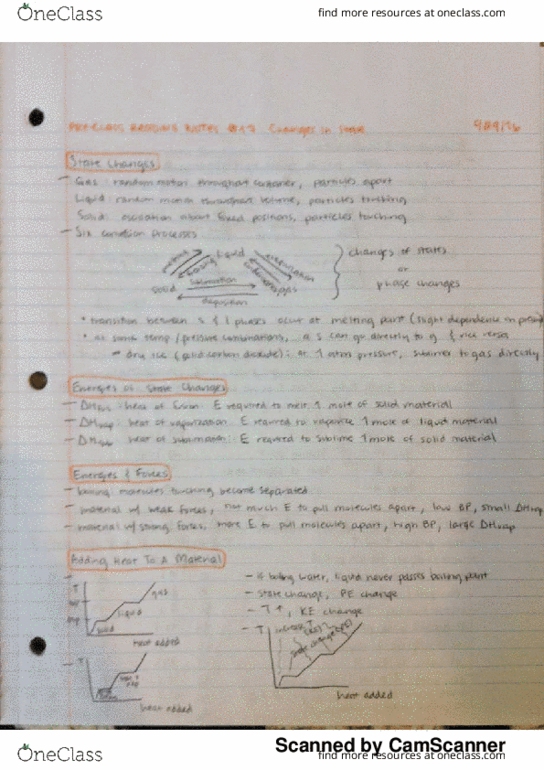 OneClass
find more resources at oneclass.com
PRE-CLASS READING NOTES #17 Changes in State
State Changes
- Gas: random motion throughout container, particles apart
Liquid: random motion throughout volume, particles touching
Solid: oscillation about fixed positions, particles touching
- Six common processes
liquid
solid
gas
sublimation
deposition
changes of states
or
phase changes
• transition between s & l phases occur at melting point (slight dependence on
• at some temp/pressure combinations, a s can go directly to g & vice versa
dry ice (solid carbon dioxide): at 1 atm pressure, sublimes to gas directly
Energies of State Changes
- ΔHfus: heat of fusion: E required to melt 1 mole of solid material
- ΔHvap: heat of vaporization: E required to vaporize 1 mole of liquid material
- ΔHsub: heat of sublimation: E required to sublime 1 mole of solid material
Energies & Forces
- boiling: molecules touching become separated
- material w/ weak forces, not much E to pull molecules apart, low BP, small ΔHvap
- material w/ strong forces, more E to pull molecules apart, high BP, large ΔHvap
Adding Heat To A Material
- if boiling water, liquid never passes boiling point
- state change, PE change
- T↑, KE change
T
bp
mp
solid
liquid
gas
heat added
T
heat added
T
increase T
heat added
Scanned by CamScanner
OneClass
find more resources at oneclass.com